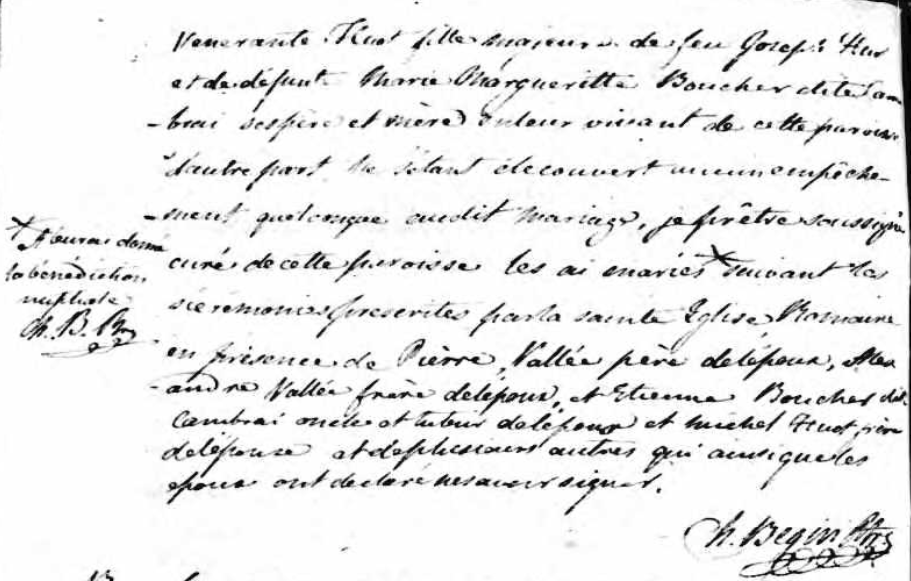 Venerante Huot fille majeure de feu Joseph Huot
et de défunte Marie Margueritte Boucher dite Cam
-brai ses père et mère vivant de cette paroisse
d'autre part. Ne s'étant découvert aucun empêche-
-ment quelconque audit mariage, je prêtre soussigné
curé de cette paroisse les ai mariés × suivant les
× & leur ai donné
la bénédiction
nuptiale
Ch. B. Ptre
céremonies prescrites par la sainte Eglise Romaine
en présence de Pierre Vallée père de lépoux, Alex
-andre Vallée frère de lépoux, et Etienne Boucher dit
Cambrai oncle et tuteur de lépouse et michel Huot frère
de lépouse et de plusieurs autres qui ainsi que les
epoux ont declaré ne savoir signer.
Ch. Begin Ptre